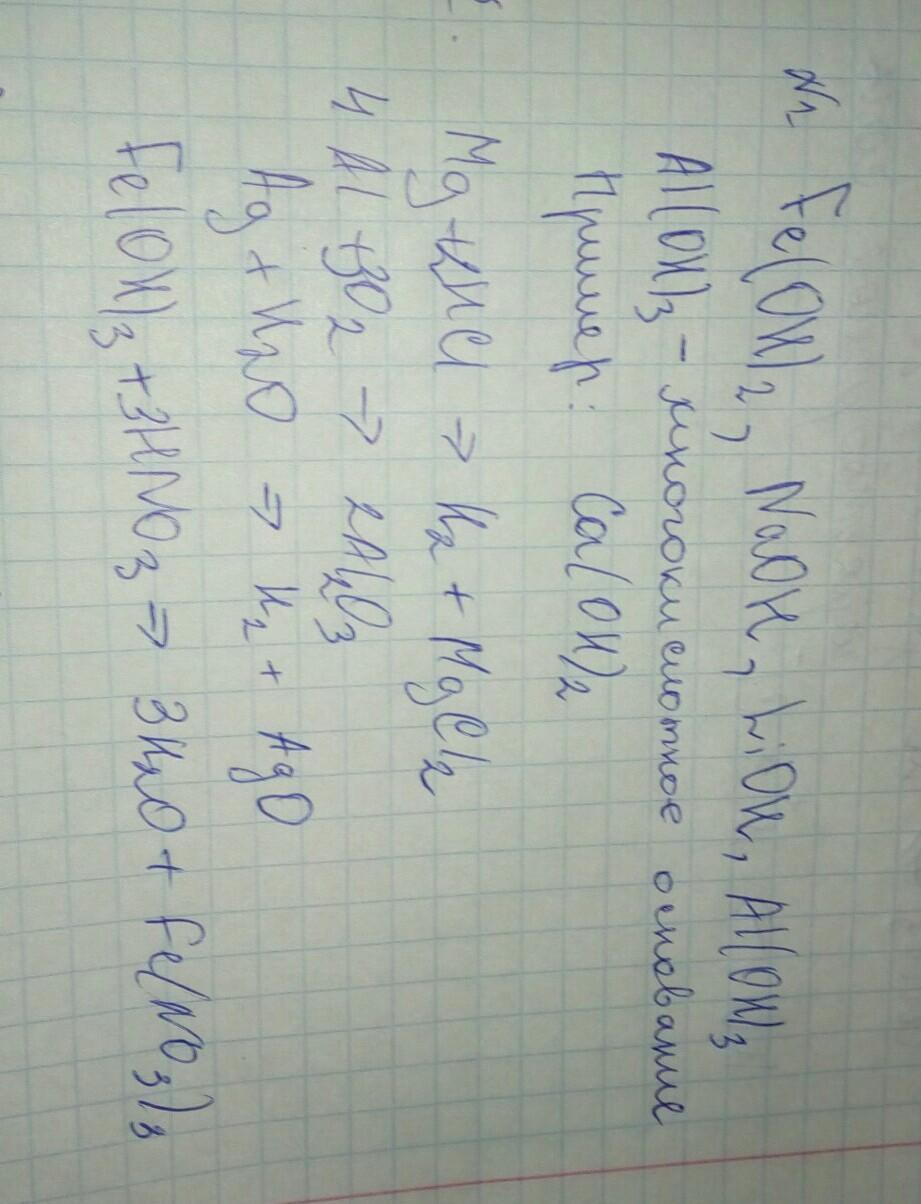 №1 Fe(OH)2, NaOH, LiOH, Al(OH)3
Al(OH)3 - многокислотное основание
Пример: Ca(OH)2
Mg + 2HCl → H2 + MgCl2
4Al + 3O2 → 2Al2O3
Ag + H2O → H2 + AgO
Fe(OH)3 + 3HNO3 → 3H2O + Fe(NO3)3